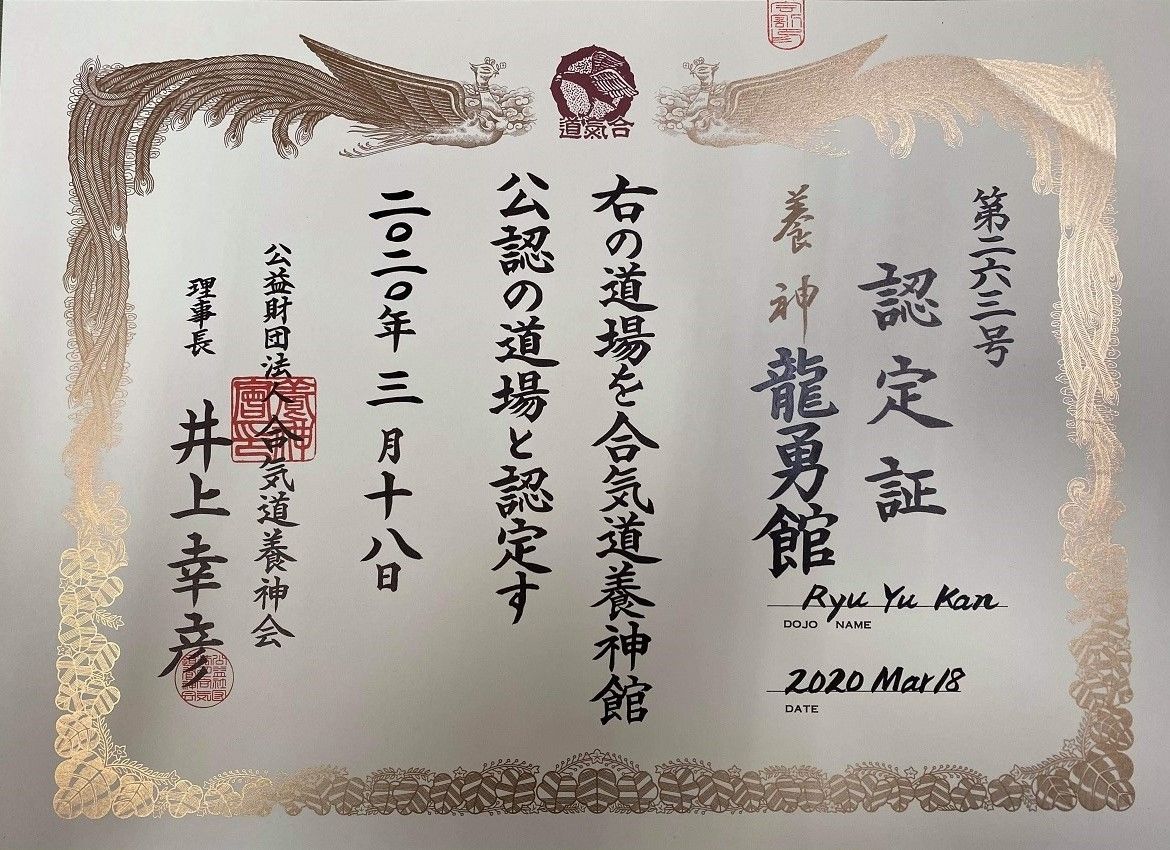 合氣道
第二六三号
認定証
養神龍勇館
Ryu Yu Kan
DOJO NAME
2020 Mar 18
DATE
右の道場を合気道養神館
公認の道場と認定す
二〇二〇年三月十八日
公益財団法人合気道養神会
理事長 井上幸彦